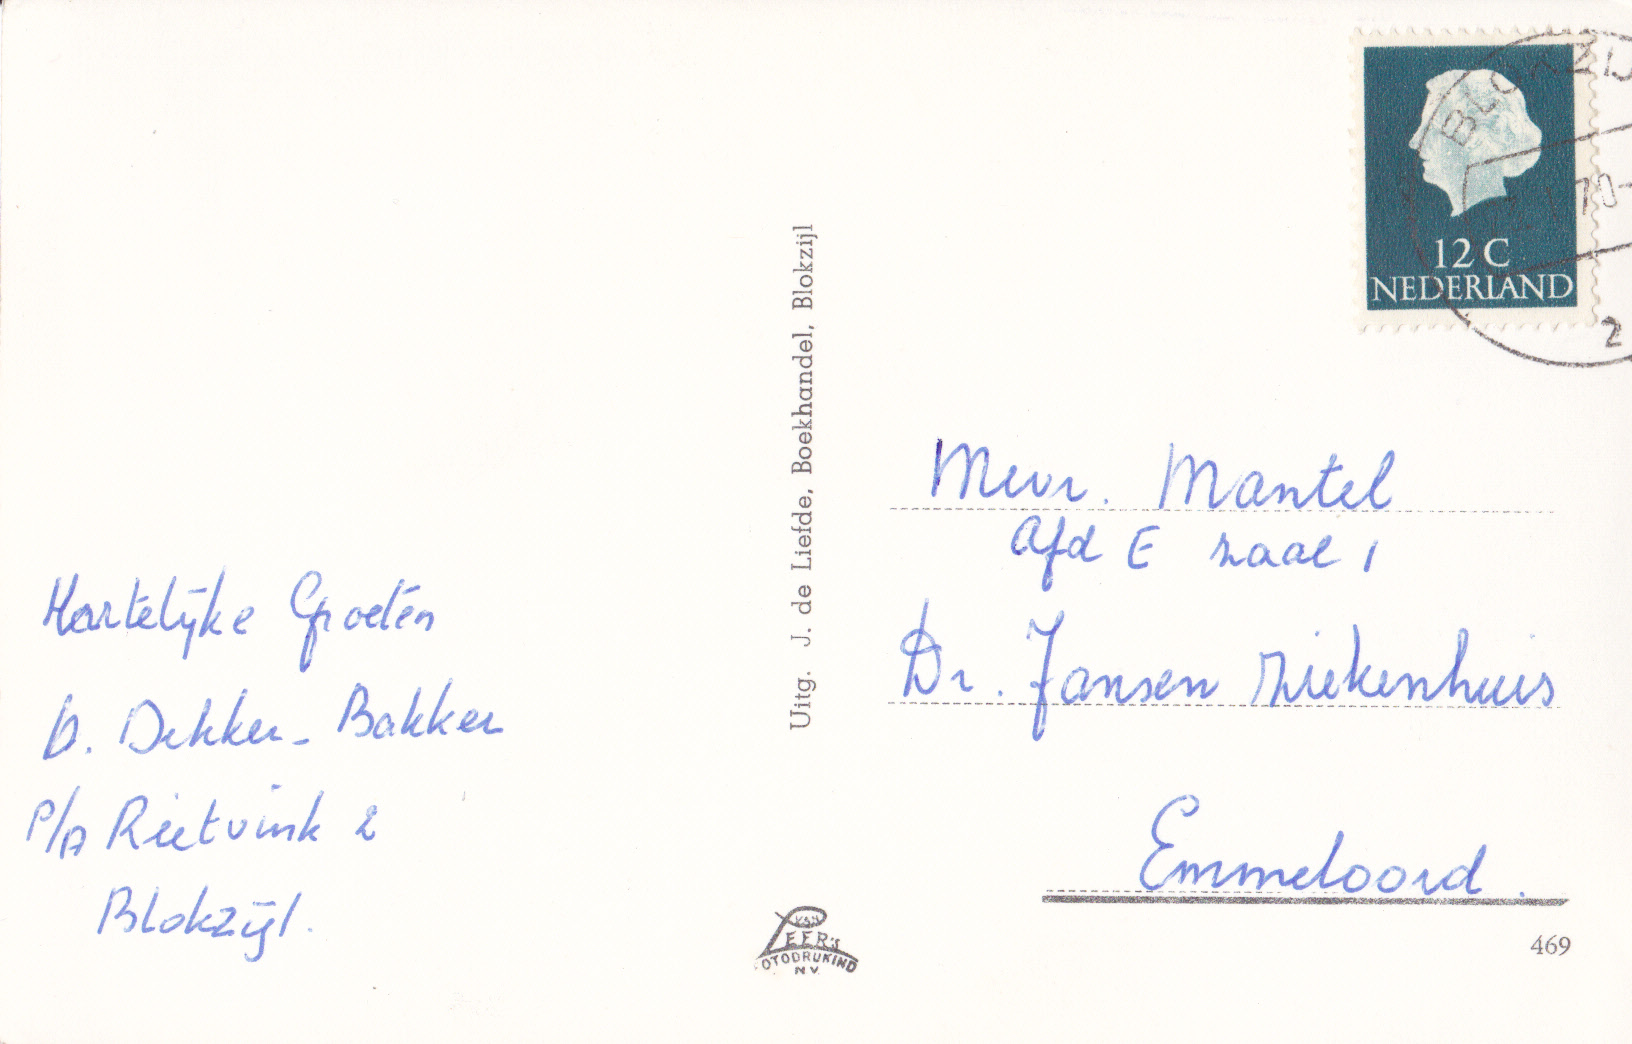 Hartelijke Groeten
D. Dekker-Bakker
P/A Rietvink 2
Blokzijl.
Uitg. J. de Liefde, Boekhandel, Blokzijl
VAN
LEER'S
FOTODRUKIND
N.V.
BLOKZIJ
70
2
12 C
NEDERLAND
Mevr. Mantel
Afd E zaal 1
Dr. Jansen Ziekenhuis
Emmeloord.
469